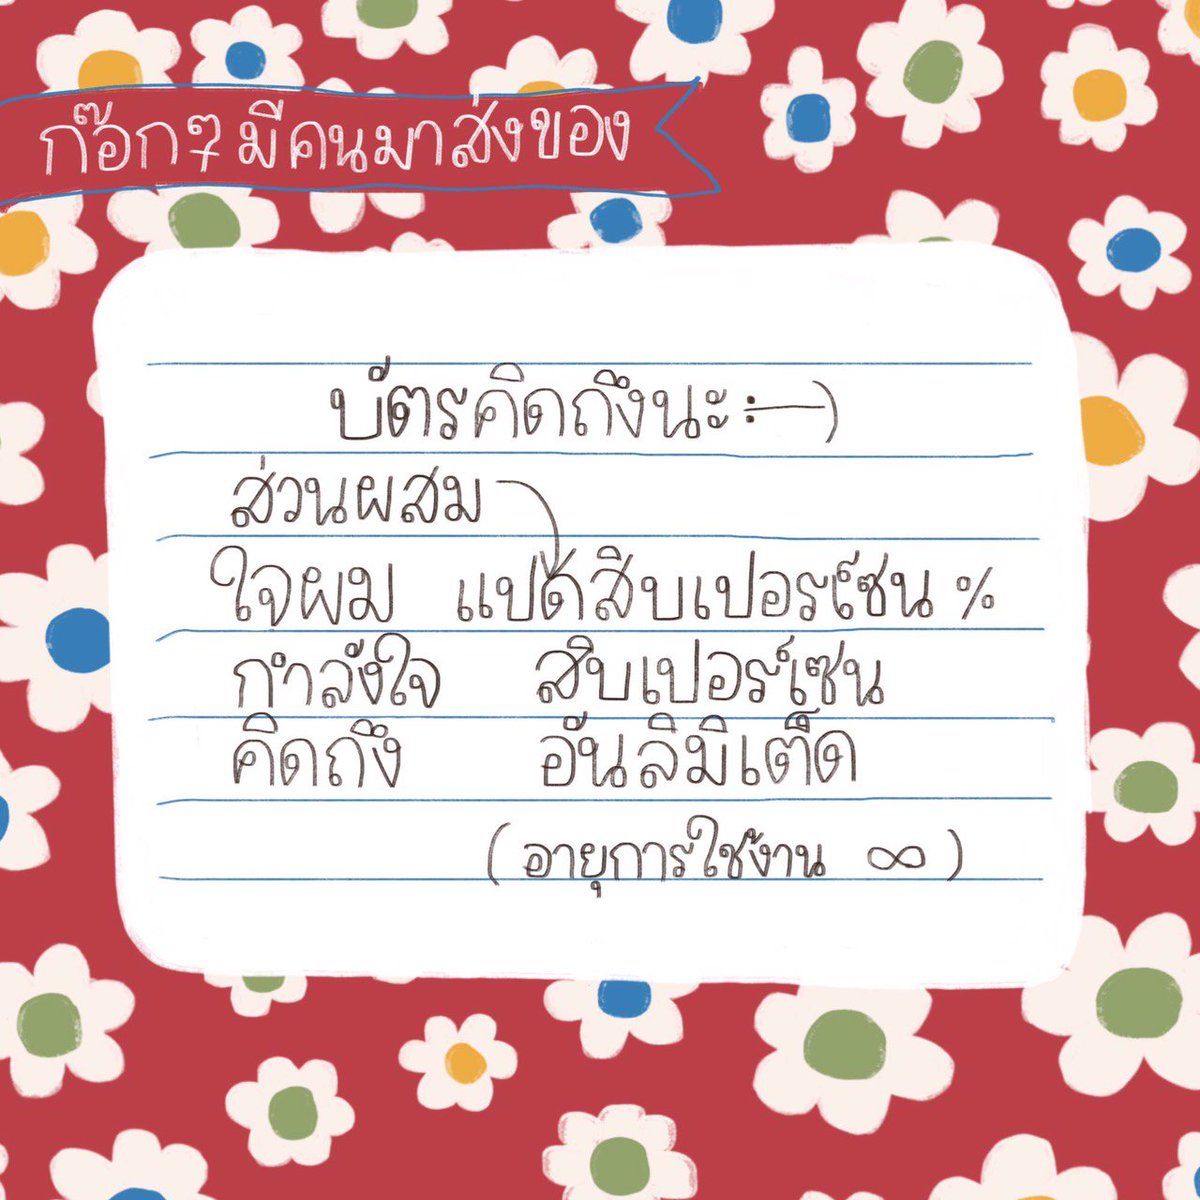 ก๊อกๆ มีคนมาส่งของ
บัตรคิดถึงนะ :—)
ส่วนผสม
ใจผม แปดสิบเปอร์เซน %
กำลังใจ สิบเปอร์เซน
คิดถึง อันลิมิเต็ด
(อายุการใช้งาน ∞)